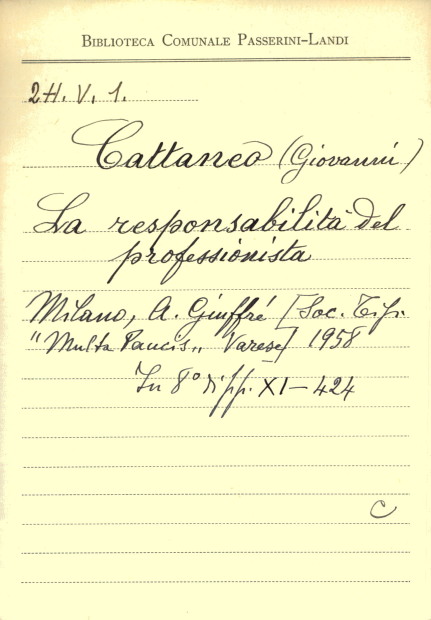 BIBLIOTECA COMUNALE PASSERINI-LANDI
2H. V. 1.
Cattaneo (Giovanni)
La responsabilità del
professionista
Milano, A. Giuffré [Soc. Tip.
"Multa Paucis„ Varese] 1958
In 8° di pp. XI-424
C